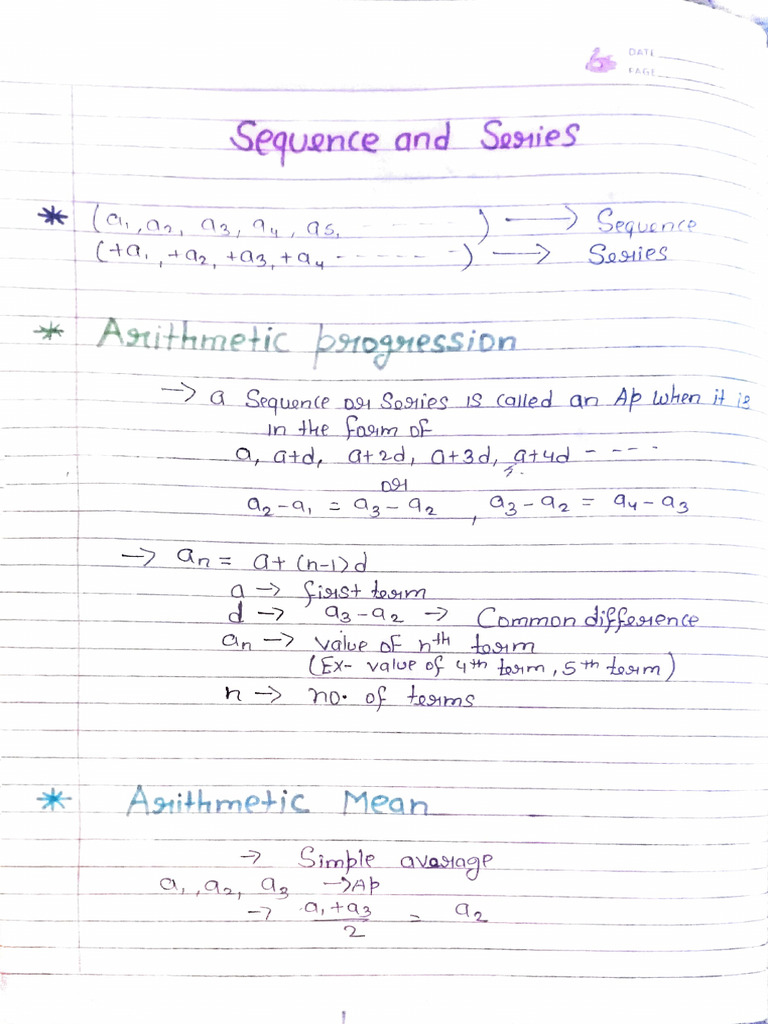 DATE
PAGE
Sequence and Series
* (a₁, a₂, a₃, a₄, a₅, - - - - - - -) → Sequence
(+a₁, +a₂, +a₃, +a₄ - - - - - - -) → Series
* Arithmetic progression
→ a Sequence or Series is called an Ap when it is
in the form of
a, a+d, a+2d, a+3d, a+4d - - - -
or
a₂-a₁ = a₃-a₂ , a₃-a₂ = a₄-a₃
→ aₙ = a+(n-1)d
a → first term
d → a₃-a₂ → Common difference
aₙ → value of nᵗʰ term
(Ex- value of 4ᵗʰ term, 5ᵗʰ term)
n → no. of terms
* Arithmetic Mean
→ Simple average
a₁, a₂, a₃ → Ap
→ (a₁+a₃)/2 = a₂